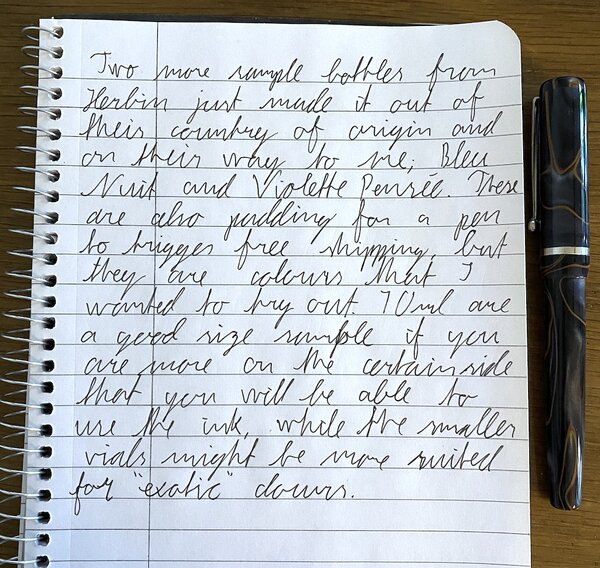 Two more sample bottles from
Herbin just made it out of
their country of origin and
on their way to me; Bleu
Nuit and Violette Pensée. These
are also padding for a pen
to trigger free shipping, but
they are colours that I
wanted to try out. 10ml are
a good size sample if you
are more on the certain side
that you will be able to
use the ink, while the smaller
vials might be more suited
for "exotic" colours.